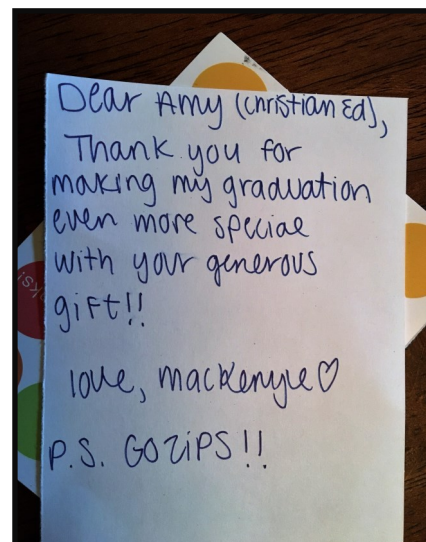 Dear Amy (Christian Ed),
Thank you for
making my graduation
even more special
with your generous
gift!!
love, mackenzie♡
P.S. GO ZIPS!!